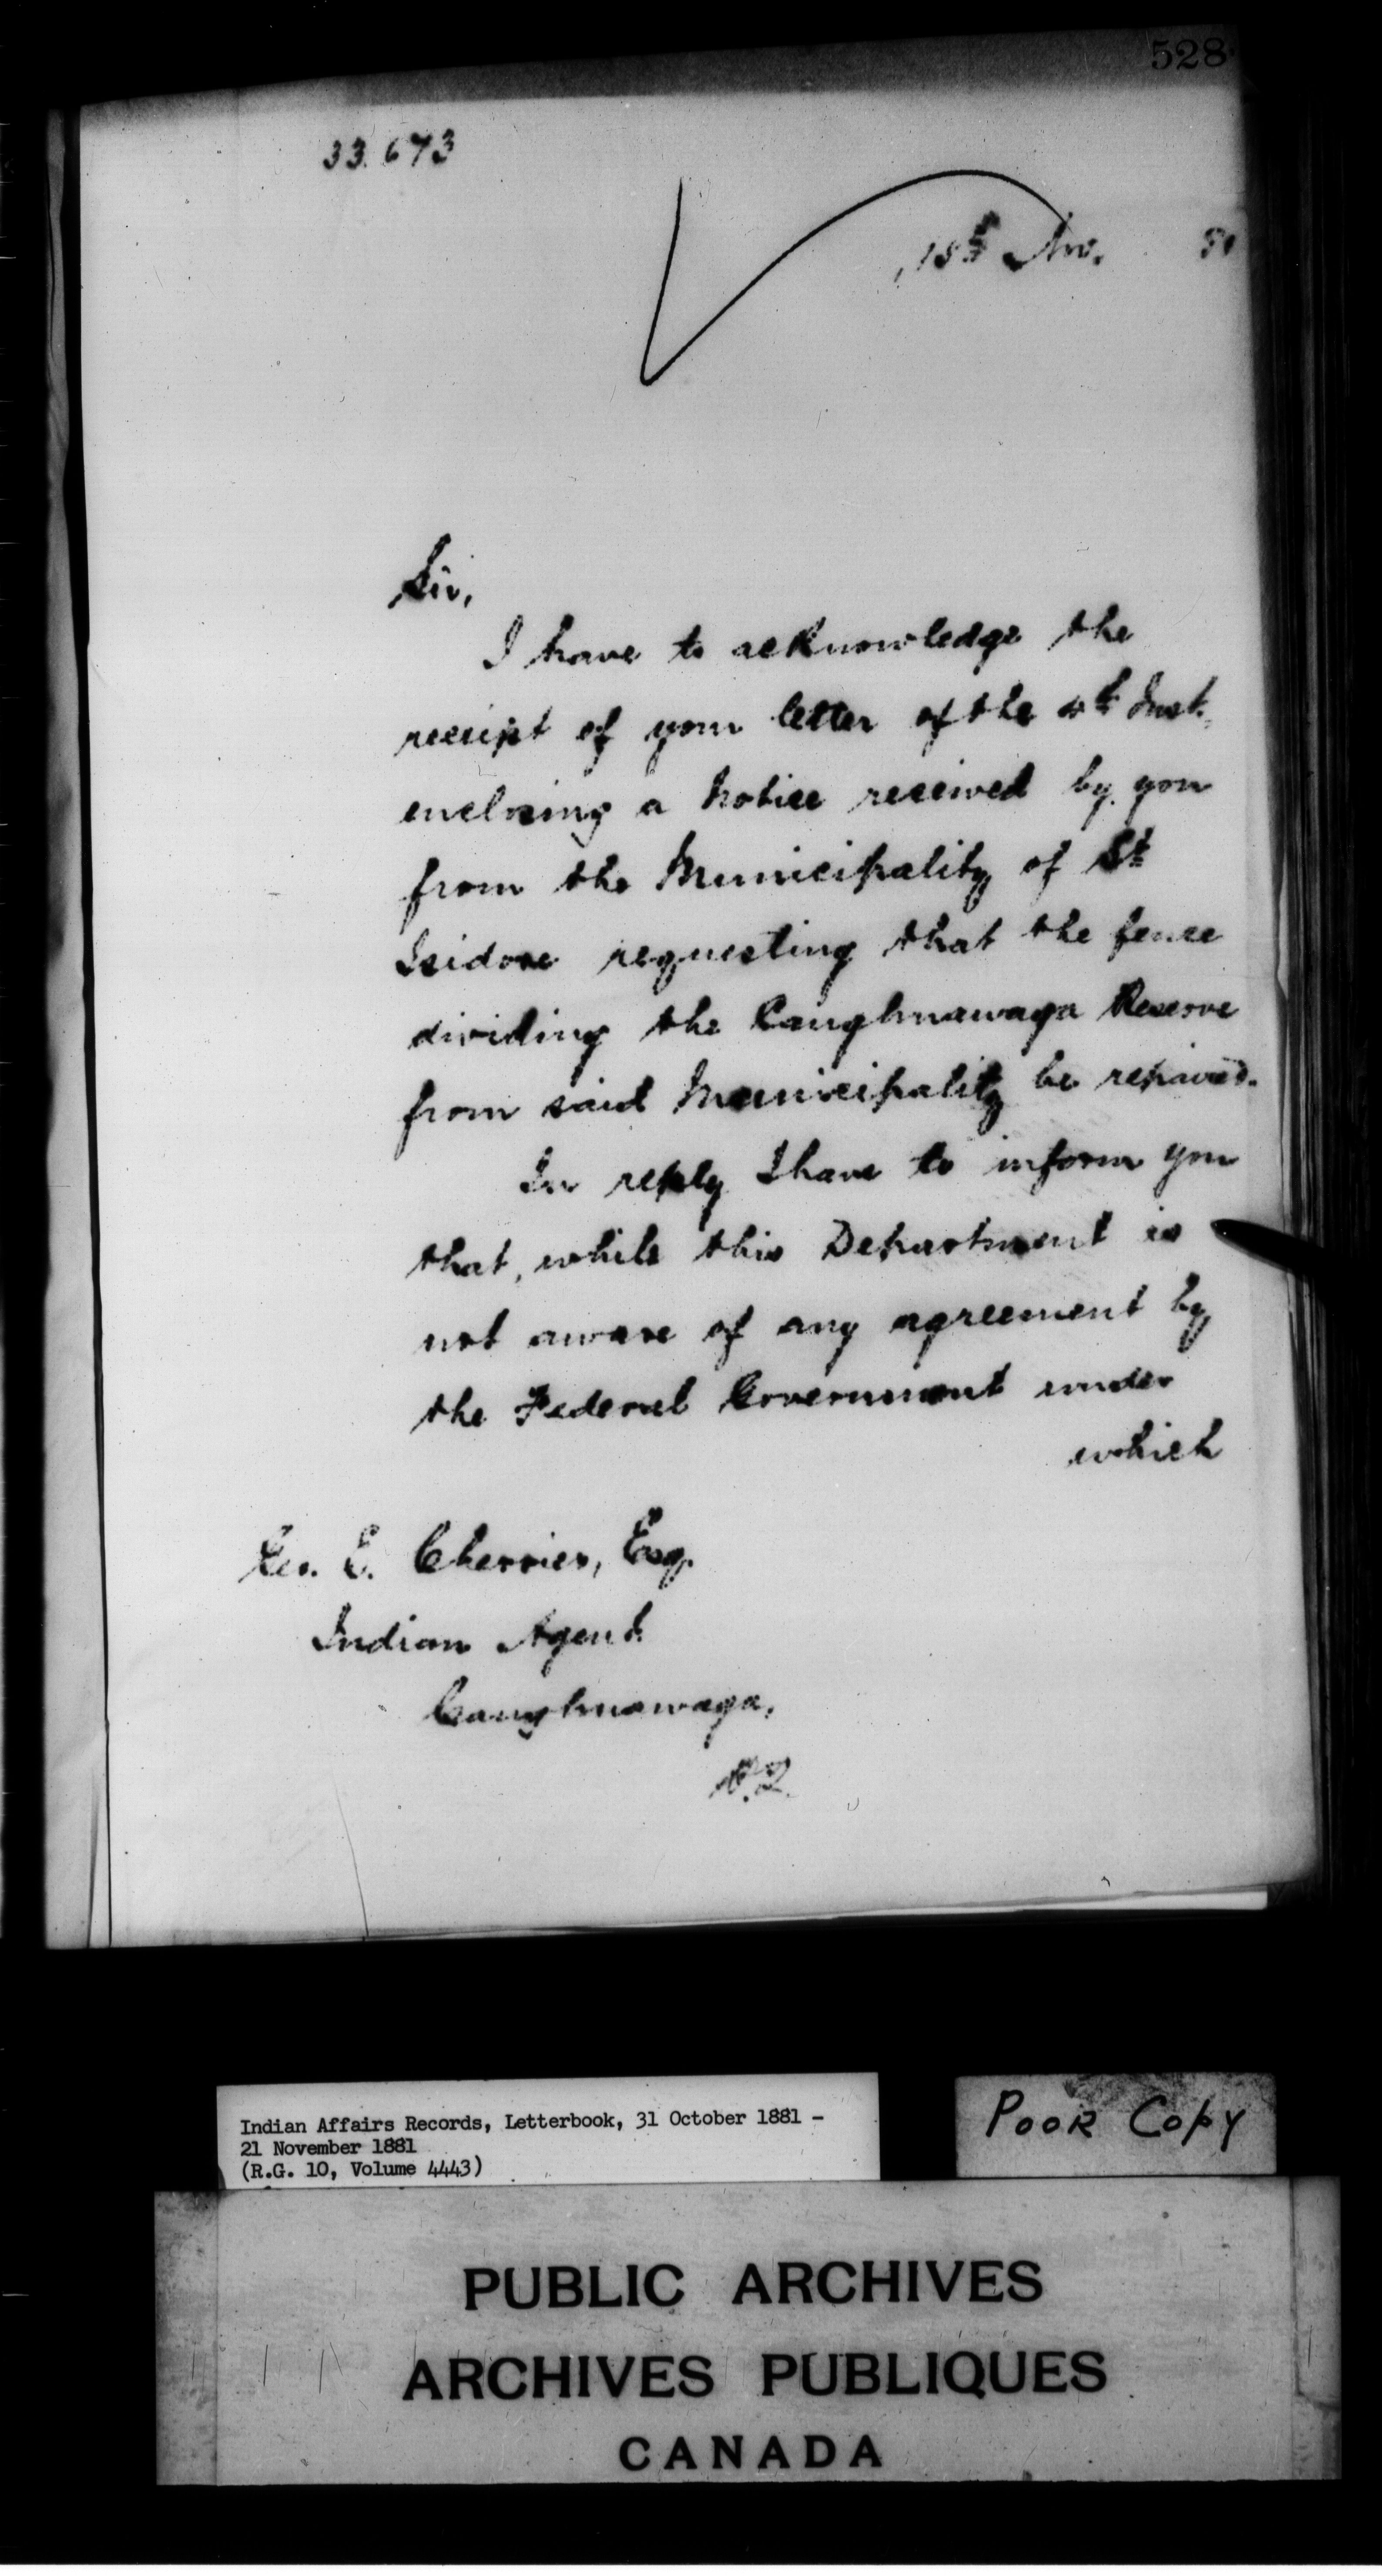 528
33.673
18th Nov. 81
Sir,
I have to acknowledge the
receipt of your letter of the 4th Inst.
enclosing a notice received by you
from the Municipality of St
Isidore requesting that the fence
dividing the Caughnawaga Reserve
from said Municipality be repaired.
In reply I have to inform you
that, while this Department is
not aware of any agreement by
the Federal Government under
which
Geo. E. Cherrier, Esq.
Indian Agent.
Caughnawaga,
P.Q.
Indian Affairs Records, Letterbook, 31 October 1881 -
21 November 1881
(R.G. 10, Volume 4443)
POOR COPY
PUBLIC ARCHIVES
ARCHIVES PUBLIQUES
CANADA